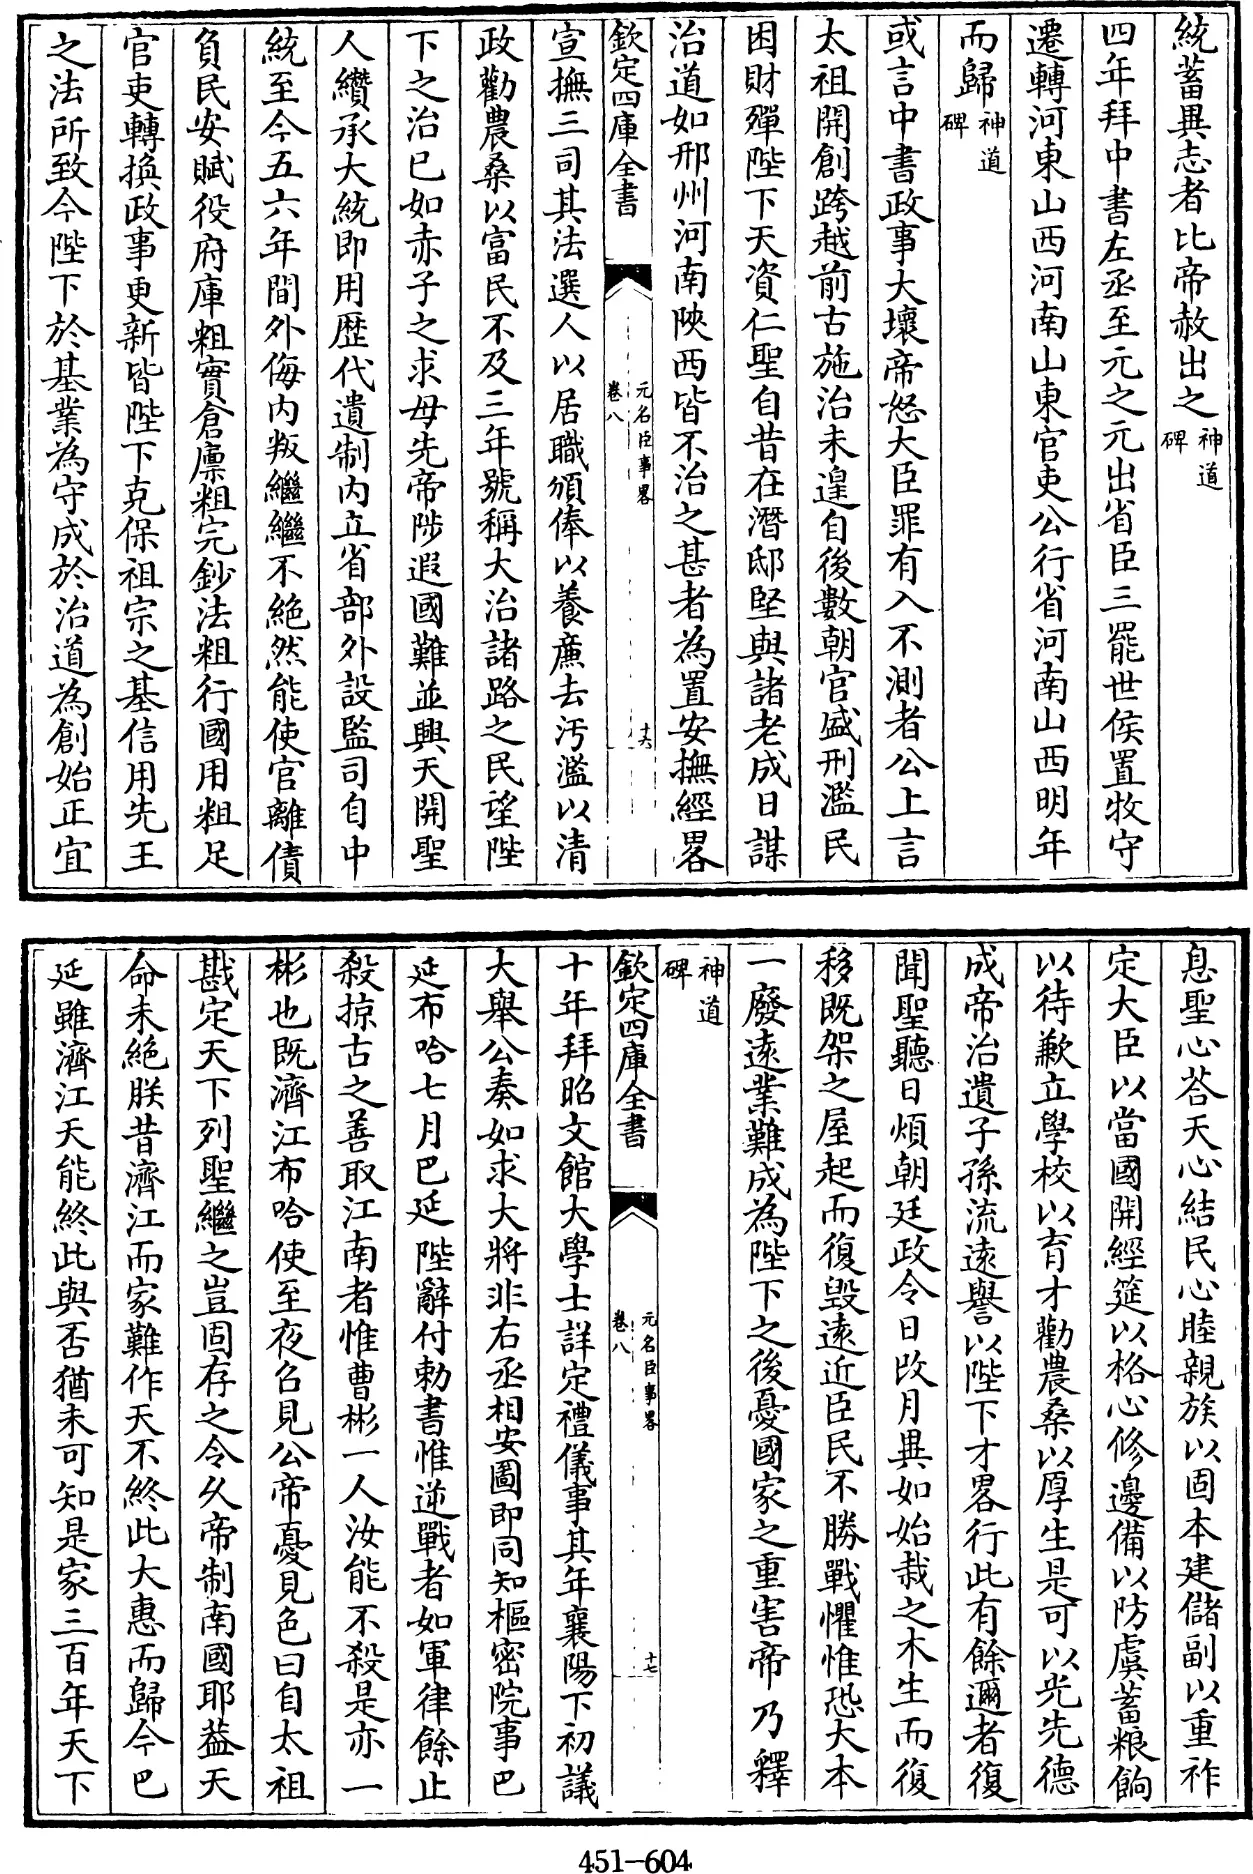 統蓄異志者比帝赦出之神道碑
四年拜中書左丞至元之元出省臣三罷世侯置牧守
遷轉河東山西河南山東官吏公行省河南山西明年
而歸神道碑
或言中書政事大壞帝怒大臣罪有入不測者公上言
太祖開創跨越前古施治未遑自後數朝官盛刑濫民
困財殫陛下天資仁聖自昔在潛邸堅與諸老成日謀
治道如邢州河南陝西皆不治之甚者為置安撫經畧
欽定四庫全書
元名臣事畧
卷八
十六
宣撫三司其法選人以居職頒俸以養廉去汚濫以清
政勸農桑以富民不及三年號稱大治諸路之民望陛
下之治已如赤子之求母先帝陟遐國難並興天開聖
人纘承大統即用歷代遺制内立省部外設監司自中
統至今五六年間外侮内叛繼繼不絶然能使官離債
負民安賦役府庫粗實倉廪粗完鈔法粗行國用粗足
官吏轉換政事更新皆陛下克保祖宗之基信用先王
之法所致今陛下於基業為守成於治道為創始正宜
息聖心荅天心結民心睦親族以固本建儲副以重祚
定大臣以當國開經筵以格心修邊備以防虞蓄粮餉
以待歉立學校以育才勸農桑以厚生是可以光先德
成帝治遺子孫流遠譽以陛下才畧行此有餘邇者復
聞聖聽日煩朝廷政令日改月異如始栽之木生而復
移既架之屋起而復毁遠近臣民不勝戰懼惟恐大本
一廢遠業難成為陛下之後憂國家之重害帝乃釋
神道碑
欽定四庫全書
元名臣事畧
卷八
十七
十年拜昭文館大學士詳定禮儀事其年襄陽下初議
大舉公奏如求大將非右丞相安圖即同知樞密院事巴
延布哈七月巴延陛辭付勅書惟逆戰者如軍律餘止
殺掠古之善取江南者惟曹彬一人汝能不殺是亦一
彬也既濟江布哈使至夜召見公帝憂見色曰自太祖
戡定天下列聖繼之豈固存之令久帝制南國耶葢天
命未絶朕昔濟江而家難作天不終此大惠而歸今巴
延雖濟江天能終此與否猶未可知是家三百年天下
451-604